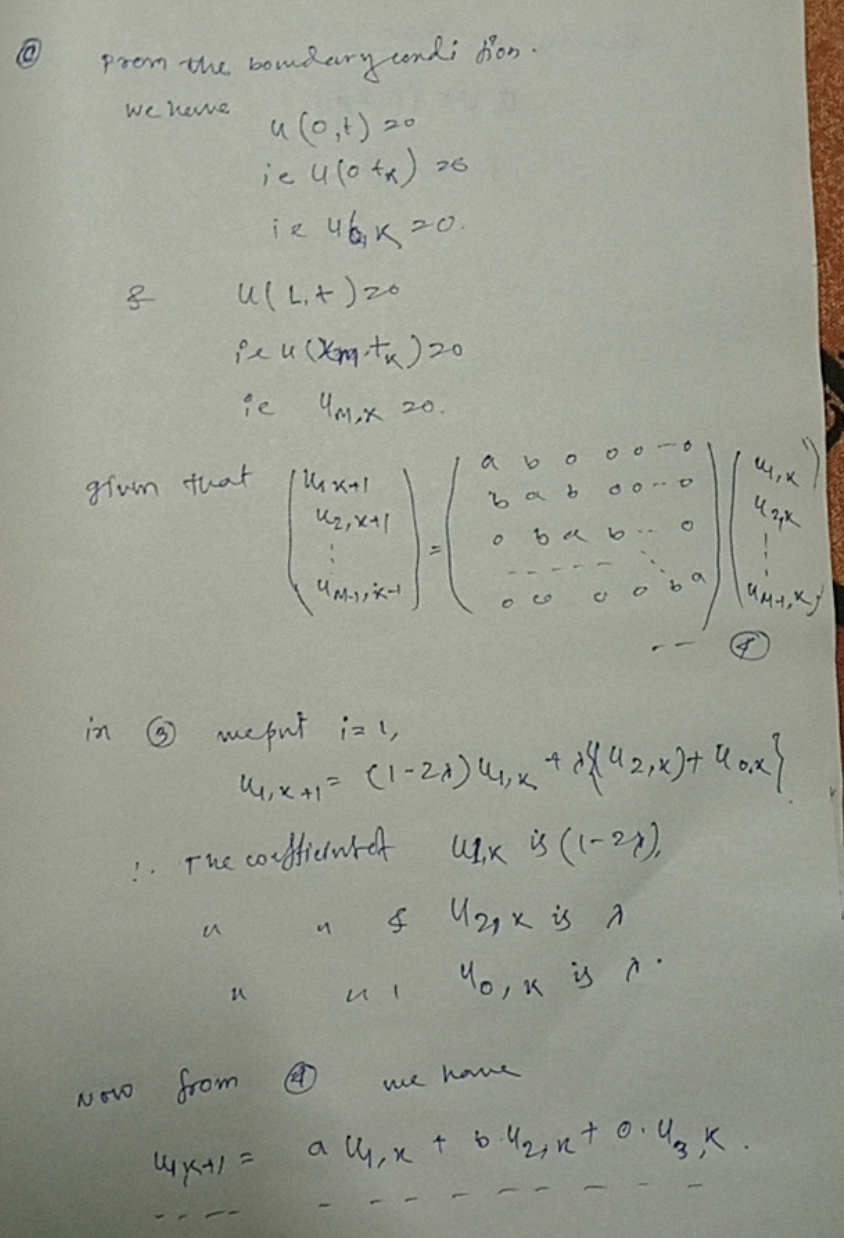 @ From the boundary condition.
we have
u(0,t) = 0
ie u(0 tk) = 0
ie u0,k = 0.
& u(L,t) = 0
ie u(xM,tk) = 0
ie uM,k = 0.
given that
( u1 k+1
u2,k+1
⋮
uM-1,k+1 )
=
( a b 0 0 0 -- 0
b a b 0 0 -- 0
0 b a b -- 0
- - - - - -
0 0 0 0 b a )
( u1,k
u2,k
⋮
uM-1,k )
-- ④
in ③ we put i = 1,
u1,k+1 = (1-2λ) u1,k + λ{(u2,k) + u0,k}
∴ The coefficient of u1,k is (1-2λ),
" " & u2,k is λ
" " u0,k is λ.
Now from ④ we have
u1 k+1 = a u1,k + b·u2,k + 0·u3,k.
- - - - - - - - - - - -